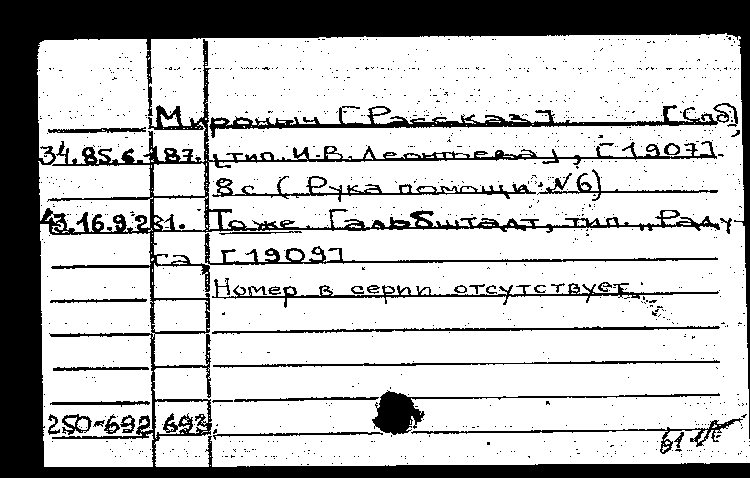 Мироныч [Рассказ]. [Спб,
34.85.6.187. „тип. И.В. Леонтьева", [1907].
8с (Рука помощи №6).
43.16.9.231. Тоже. Гальбштадт, тип. „Раду-
га [1909].
Номер в серии отсутствует.
250-692,693.